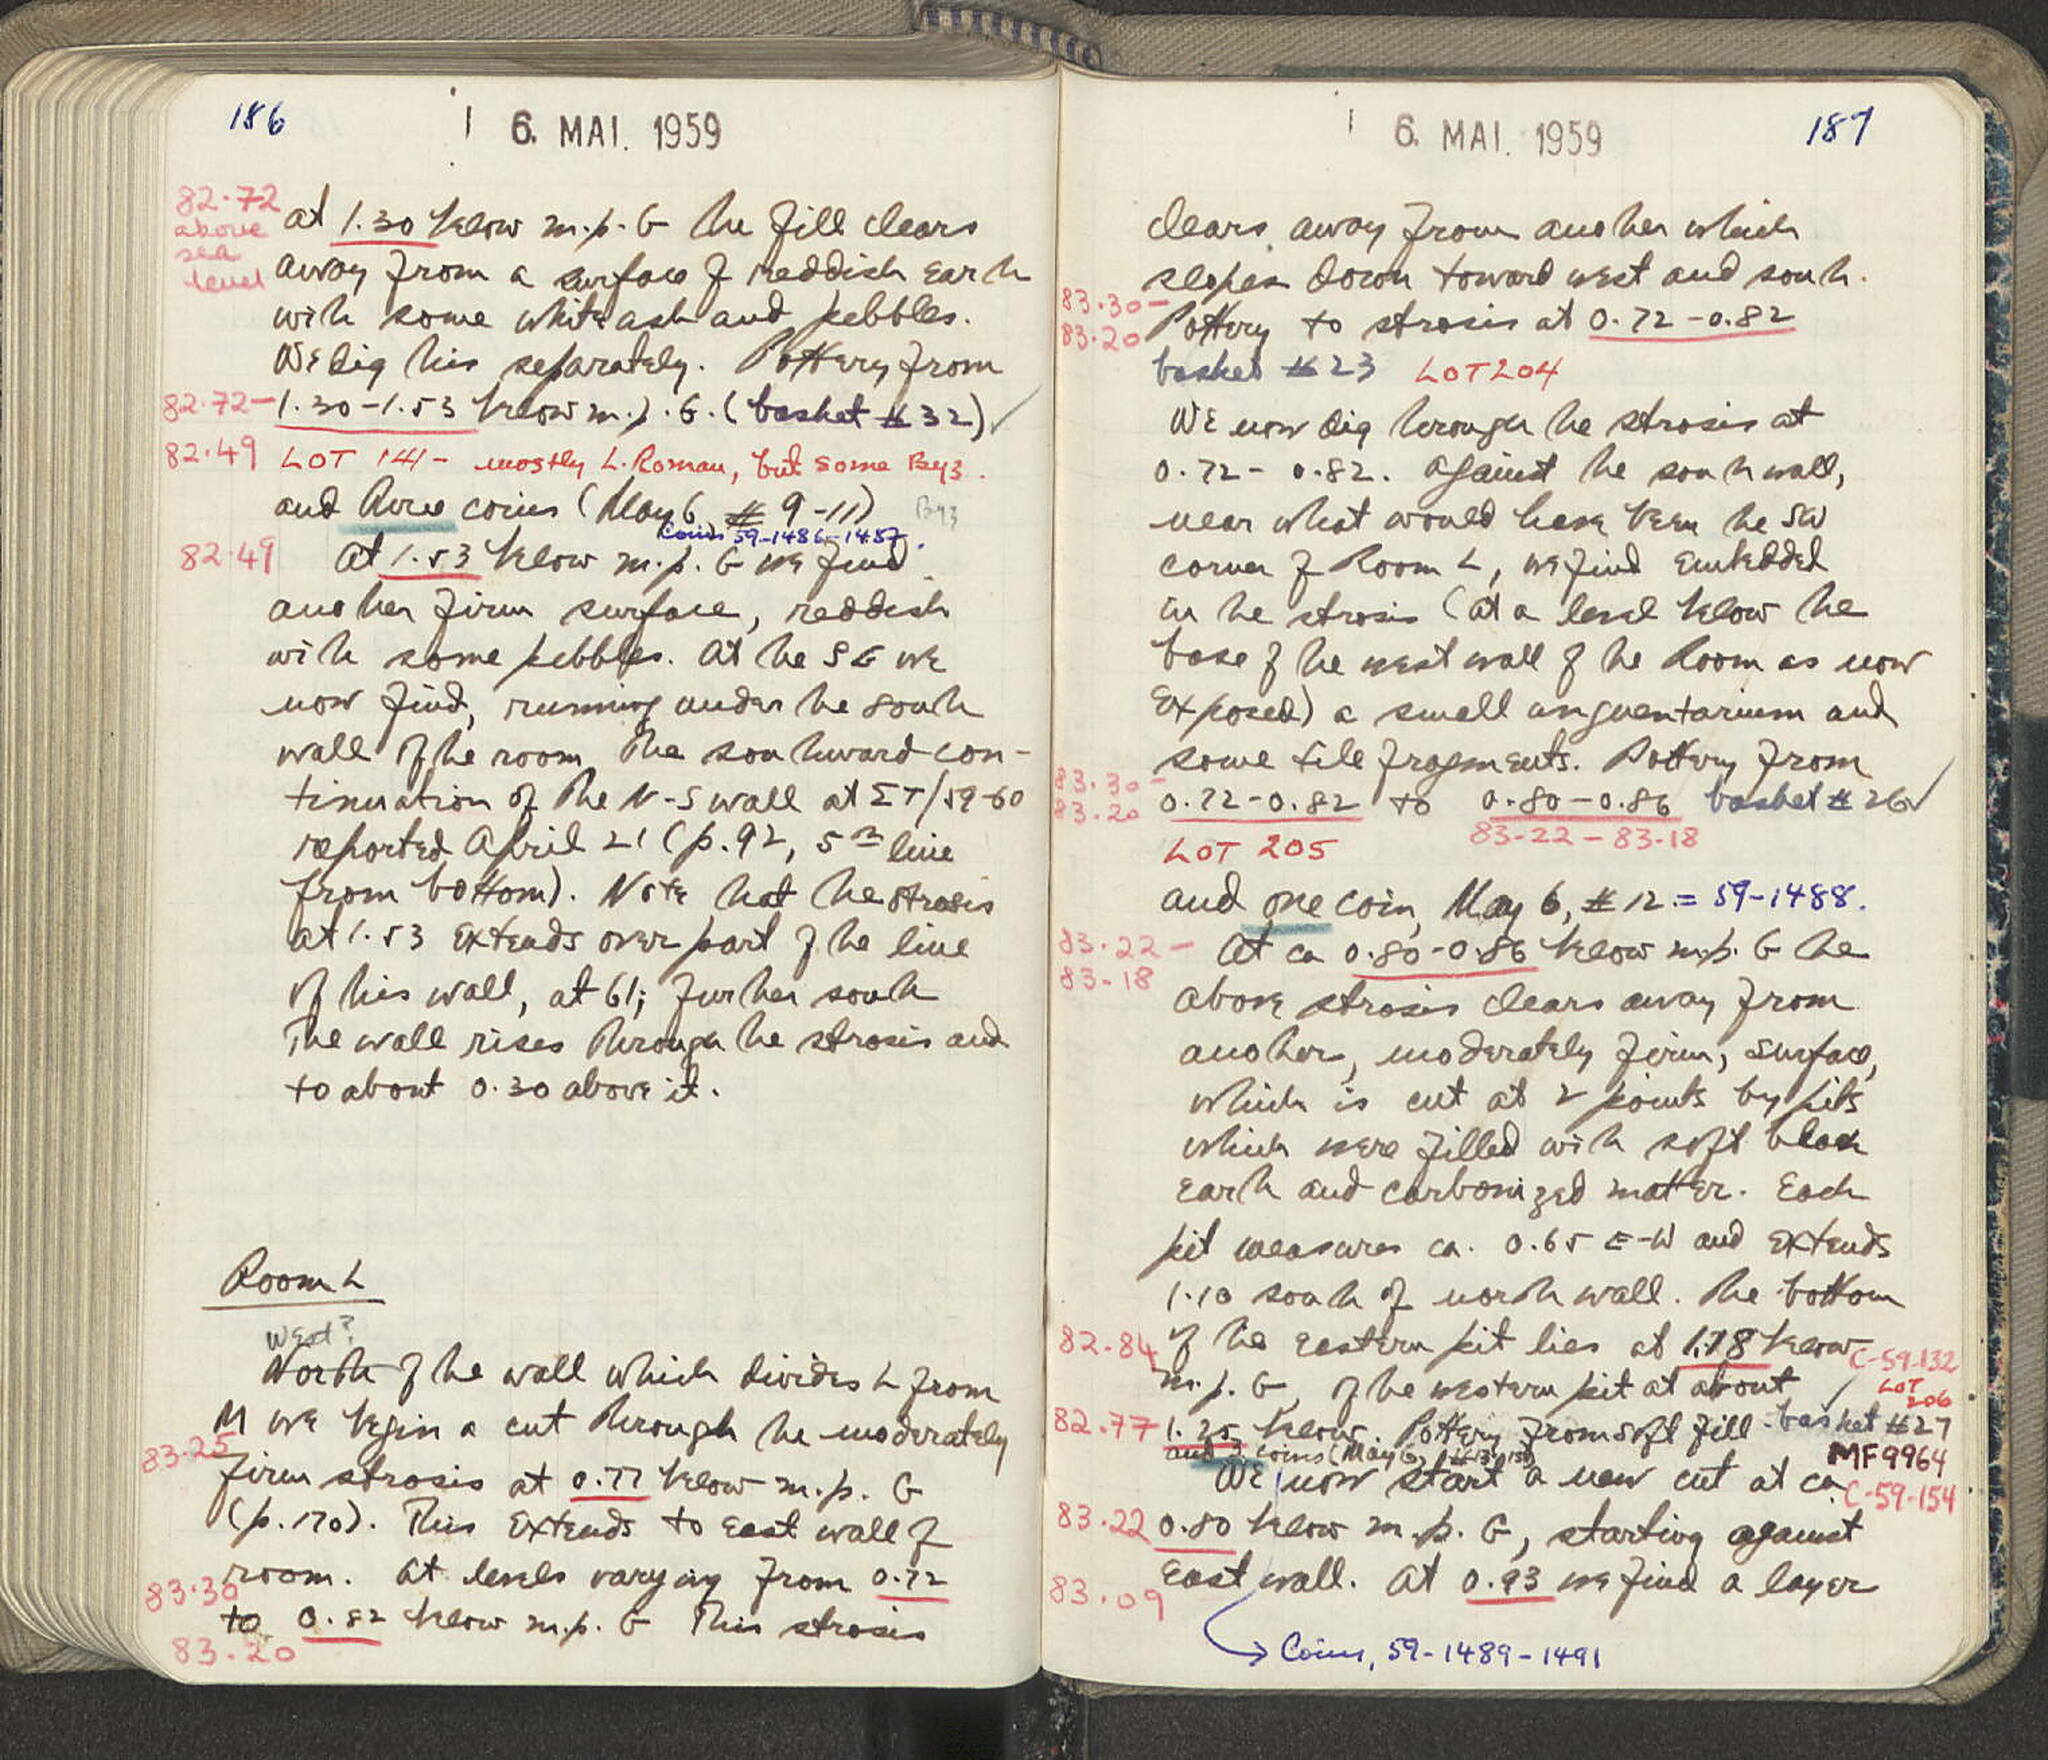 186
6. MAI. 1959
82.72 above sea level
at 1.30 below m.p. G the fill clears
away from a surface of reddish earth
with some white ash and pebbles.
We dig this separately. Pottery from
82.72-82.49
1.30-1.53 below m.p. G. (basket #32) ✓
LOT 141 - mostly L. Roman, but some Byz.
and three coins (May 6 # 9-11) Byz
Coins 59-1486-1487.
82.49
At 1.53 below m.p. G we find
another firm surface, reddish
with some pebbles. At the SE we
now find, running under the south
wall of the room the southward con-
tinuation of the N-S wall at ΣT/59-60
reported April 21 (p. 92, 5th line
from bottom). Note that the strosis
at 1.53 extends over part of the line
of this wall, at 61; further south
the wall rises through the strosis and
to about 0.30 above it.
Room L
West?
North of the wall which divides L from
M we begin a cut through the moderately
83.25
firm strosis at 0.77 below m.p. G
(p. 170). This extends to east wall of
room. At levels varying from 0.72
83.30
to 0.82 below m.p. G this strosis
83.20
6. MAI. 1959
187
clears away from another which
slopes down toward west and south.
83.30-83.20
Pottery to strosis at 0.72-0.82
basket #23 LOT 204
We now dig through the strosis at
0.72-0.82. Against the south wall,
near what would have been the SW
corner of Room L, we find embedded
in the strosis (at a level below the
base of the west wall of the Room as now
exposed) a small unguentarium and
some tile fragments. Pottery from
83.30-83.20
0.72-0.82 to 0.80-0.86 basket #26 ✓
83.22-83.18
LOT 205
and one coin, May 6, #12 = 59-1488.
83.22-83.18
At ca 0.80-0.86 below m.p. G the
above strosis clears away from
another, moderately firm, surface,
which is cut at 2 points by pits
which were filled with soft black
earth and carbonized matter. Each
pit measures ca. 0.65 E-W and extends
1.10 south of north wall. The bottom
82.84
of the eastern pit lies at 1.18 below
C-59-132
m.p. G, of the western pit at about ✓
LOT 206
82.77
1.25 below. Pottery from soft fill - basket #27
and 3 coins (May 6, #13-15)
MF9964
We now start a new cut at ca
C-59-154
83.22
0.80 below m.p. G, starting against
east wall. At 0.93 we find a layer
83.09
→ Coins, 59-1489-1491